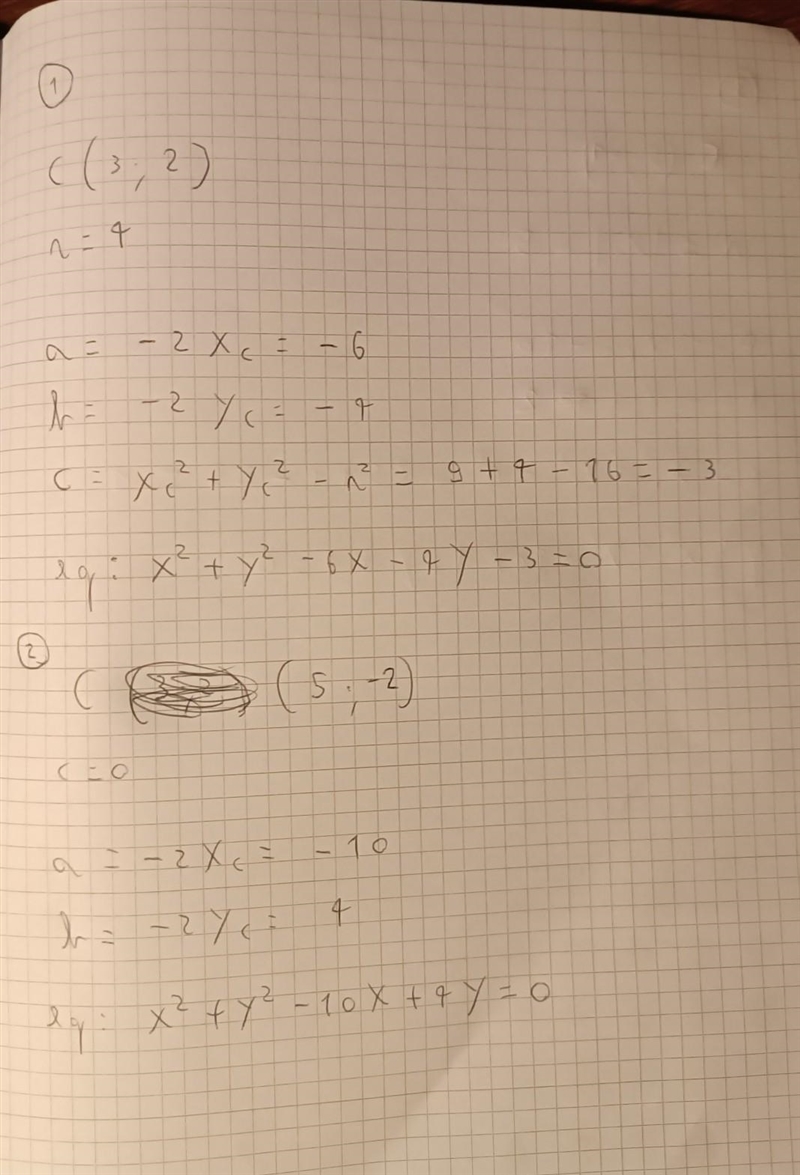 ①
C (3; 2)
r = 4
a = - 2 Xc = - 6
b = - 2 Yc = - 4
c = Xc² + Yc² - r² = 9 + 4 - 16 = - 3
eq: X² + Y² - 6X - 4Y - 3 = 0
②
C (5; -2)
c = 0
a = - 2 Xc = - 10
b = - 2 Yc = 4
eq: X² + Y² - 10X + 4Y = 0